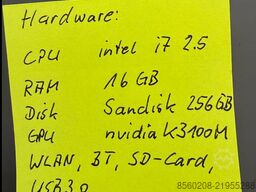 Hardware:
CPU intel i7 2.5
RAM 16 GB
Disk Sandisk 256GB
GPU nvidia K3100M
WLAN, BT, SD-Card,
USB3.0
8560208-21955288